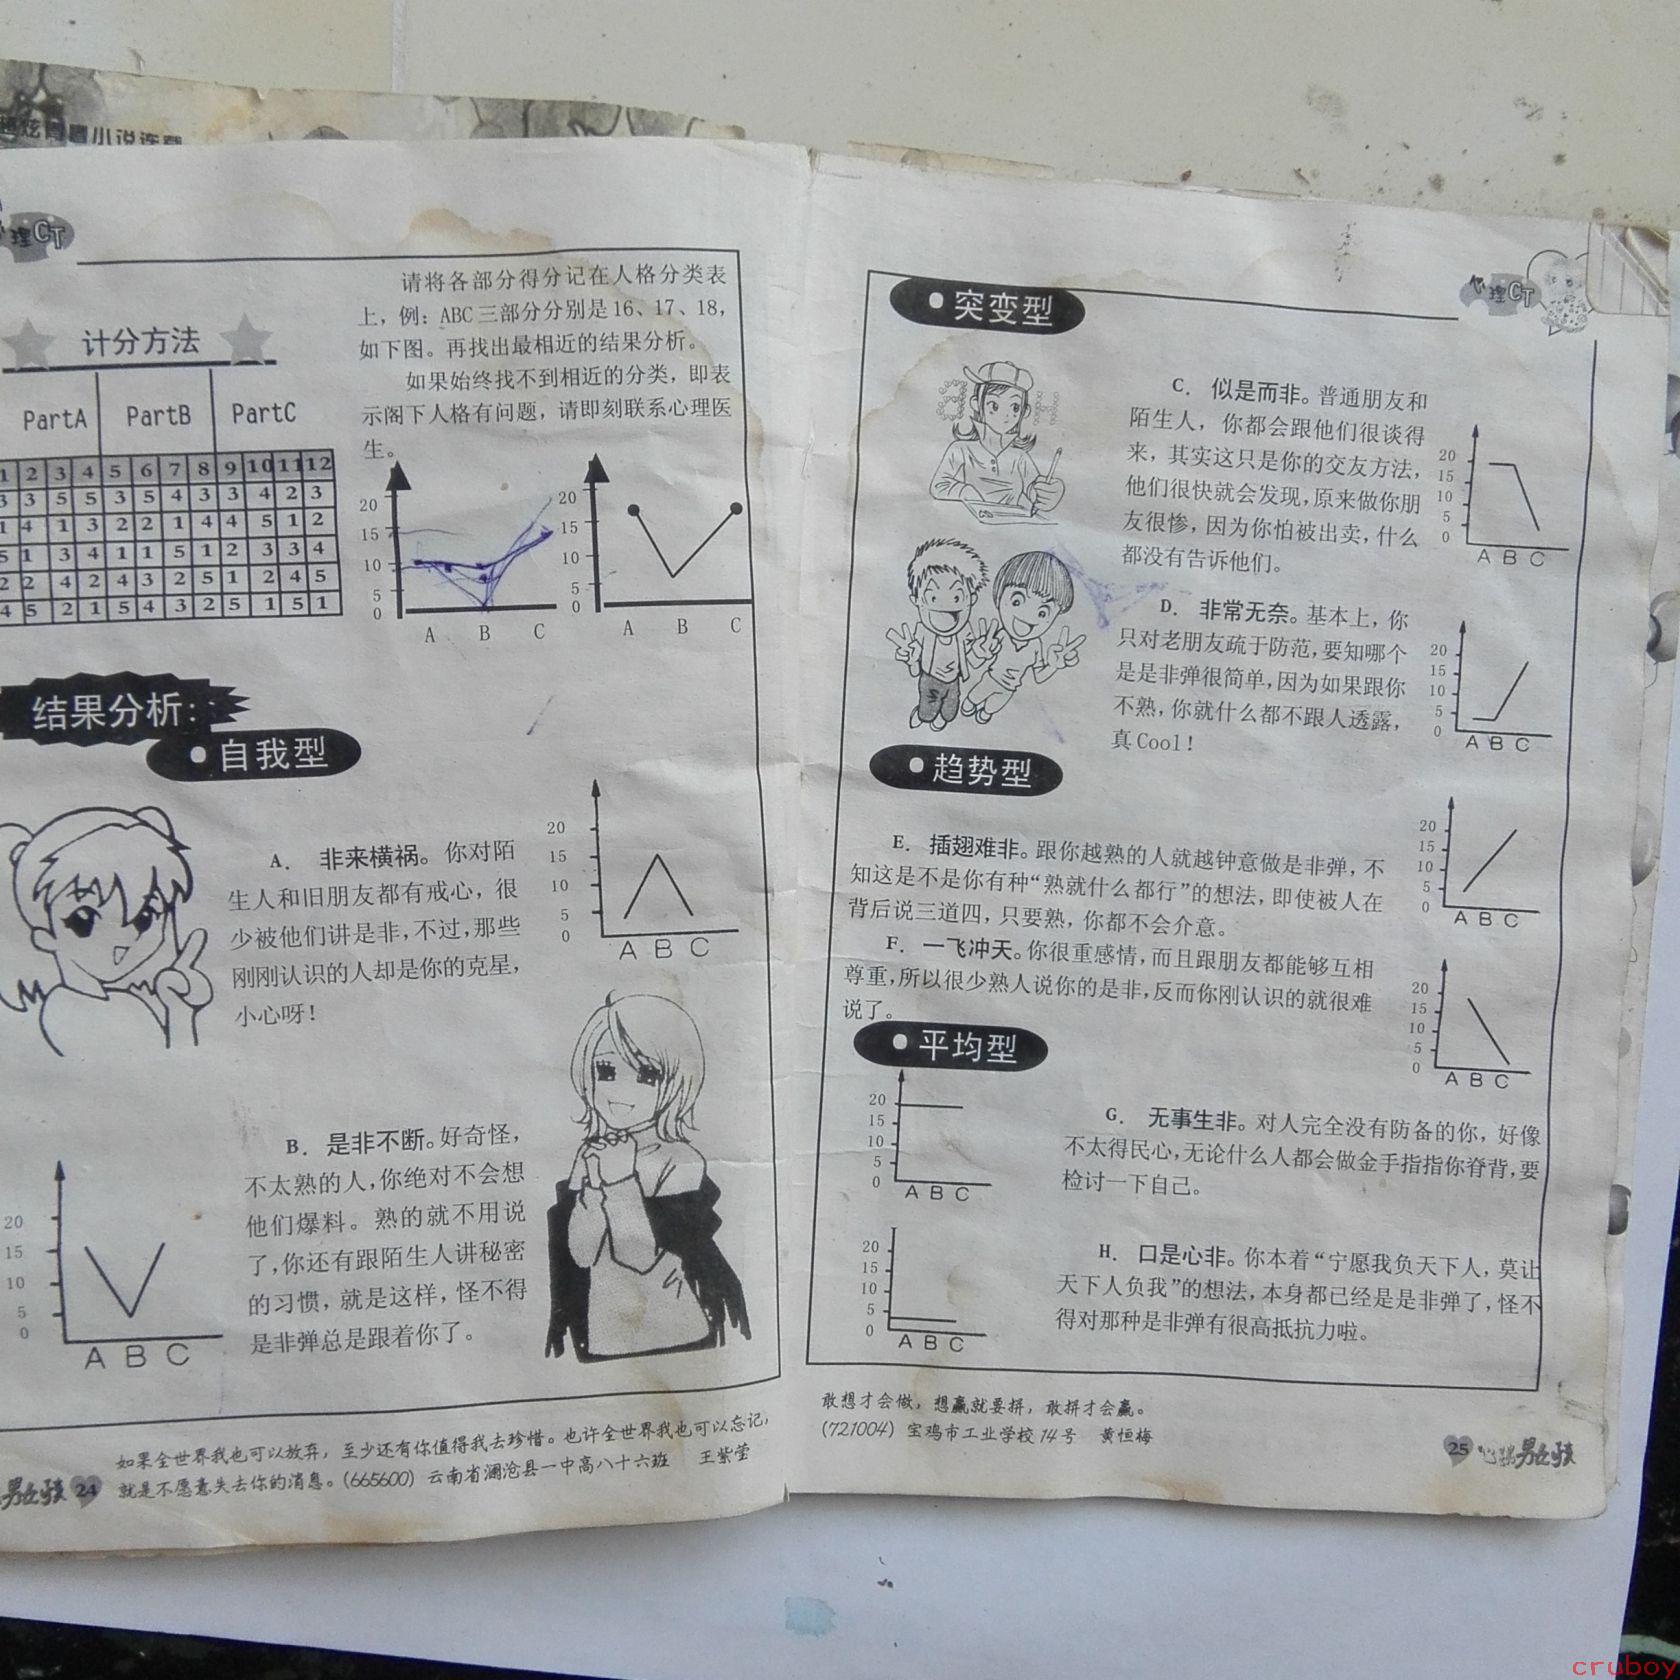 炫 小说连载
心理CT
计分方法
PartA PartB PartC
1 2 3 4 5 6 7 8 9 10 11 12
3 3 5 5 3 5 4 3 3 4 2 3
1 4 1 3 2 2 1 4 4 5 1 2
5 1 3 4 1 1 5 1 2 3 3 4
2 2 4 2 4 3 2 5 1 2 4 5
4 5 2 1 5 4 3 2 5 1 5 1
请将各部分得分记在人格分类表
上，例：ABC三部分分别是16、17、18，
如下图。再找出最相近的结果分析。
如果始终找不到相近的分类，即表
示阁下人格有问题，请即刻联系心理医
生。
20
15
10
5
0
A B C
20
15
10
5
0
A B C
结果分析：
·自我型
A. 非来横祸。你对陌
生人和旧朋友都有戒心，很
少被他们讲是非，不过，那些
刚刚认识的人却是你的克星，
小心呀！
20
15
10
5
0
A B C
20
15
10
5
0
A B C
B. 是非不断。好奇怪，
不太熟的人，你绝对不会想
他们爆料。熟的就不用说
了，你还有跟陌生人讲秘密
的习惯，就是这样，怪不得
是非弹总是跟着你了。
如果全世界我也可以放弃，至少还有你值得我去珍惜。也许全世界我也可以忘记，
就是不愿意失去你的消息。(665600) 云南省澜沧县一中高八十六班 王紫莹
男女孩 24
心理CT
·突变型
C. 似是而非。普通朋友和
陌生人，你都会跟他们很谈得
来，其实这只是你的交友方法，
他们很快就会发现，原来做你朋
友很惨，因为你怕被出卖，什么
都没有告诉他们。
20
15
10
5
0
A B C
D. 非常无奈。基本上，你
只对老朋友疏于防范，要知哪个
是是非弹很简单，因为如果跟你
不熟，你就什么都不跟人透露，
真Cool！
20
15
10
5
0
A B C
·趋势型
E. 插翅难非。跟你越熟的人就越钟意做是非弹，不
知这是不是你有种“熟就什么都行”的想法，即使被人在
背后说三道四，只要熟，你都不会介意。
20
15
10
5
0
A B C
F. 一飞冲天。你很重感情，而且跟朋友都能够互相
尊重，所以很少熟人说你的是非，反而你刚认识的就很难
说了。
20
15
10
5
0
A B C
·平均型
20
15
10
5
0
A B C
G. 无事生非。对人完全没有防备的你，好像
不太得民心，无论什么人都会做金手指指你脊背，要
检讨一下自己。
20
15
10
5
0
A B C
H. 口是心非。你本着“宁愿我负天下人，莫让
天下人负我”的想法，本身都已经是是非弹了，怪不
得对那种是非弹有很高抵抗力啦。
敢想才会做，想赢就要拼，敢拼才会赢。
(721004) 宝鸡市工业学校14号 黄恒梅
25 心跳男女孩
cruboy